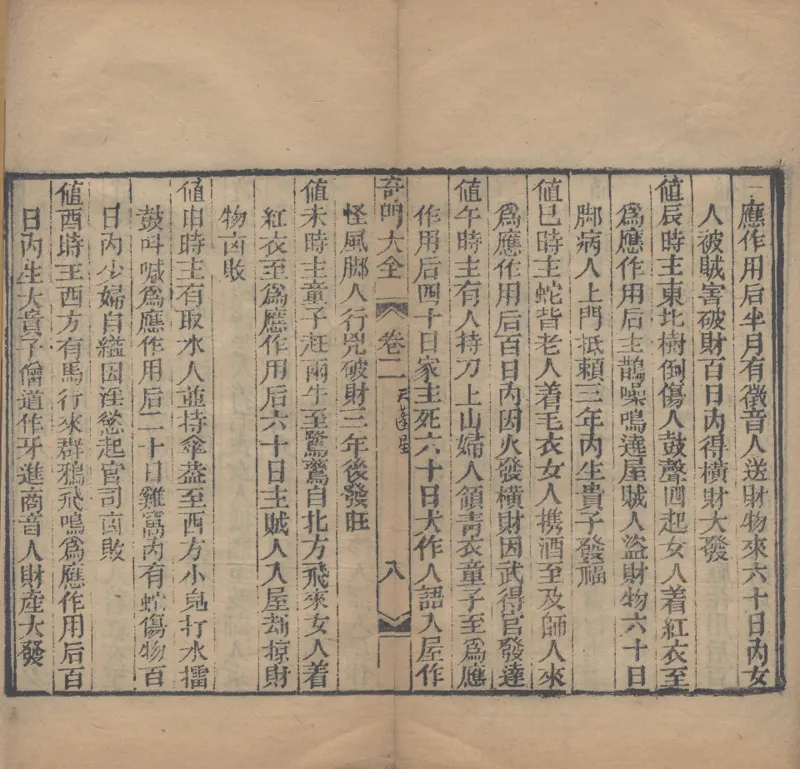 應作用后半月有徵音人送財物來六十日內女
人被賊害破財百日內得橫財大發
值辰時主東北樹倒傷人鼓聲四起女人着紅衣至
爲應作用后主鵲噪鳴遶屋賊人盜財物六十日
脚病人上門抵賴三年內生貴子發福
值巳時主蛇皆老人着毛衣女人携酒至及師人來
爲應作用后百日內因火發橫財因武得官發達
值午時主有人持刀上山婦人領青衣童子至爲應
作用后四十日家主死六十日犬作人語入屋作
奇門大全 卷二 天蓬星 八
怪風脚人行兇破財三年後發旺
值未時主童子赶兩牛至鴛鴦自北方飛來女人着
紅衣至爲應作用后六十日主賊人入屋刼掠財
物凶敗
值申時主有取水人並持傘葢至西方小兒打水擂
鼓呌喊爲應作用后二十日雞窩內有蛇傷物百
日內少婦自縊因淫慾起官司凶敗
值酉時主西方有馬行來群鴉飛鳴爲應作用后百
日內生大貴子僧道作牙進商音人財產大發